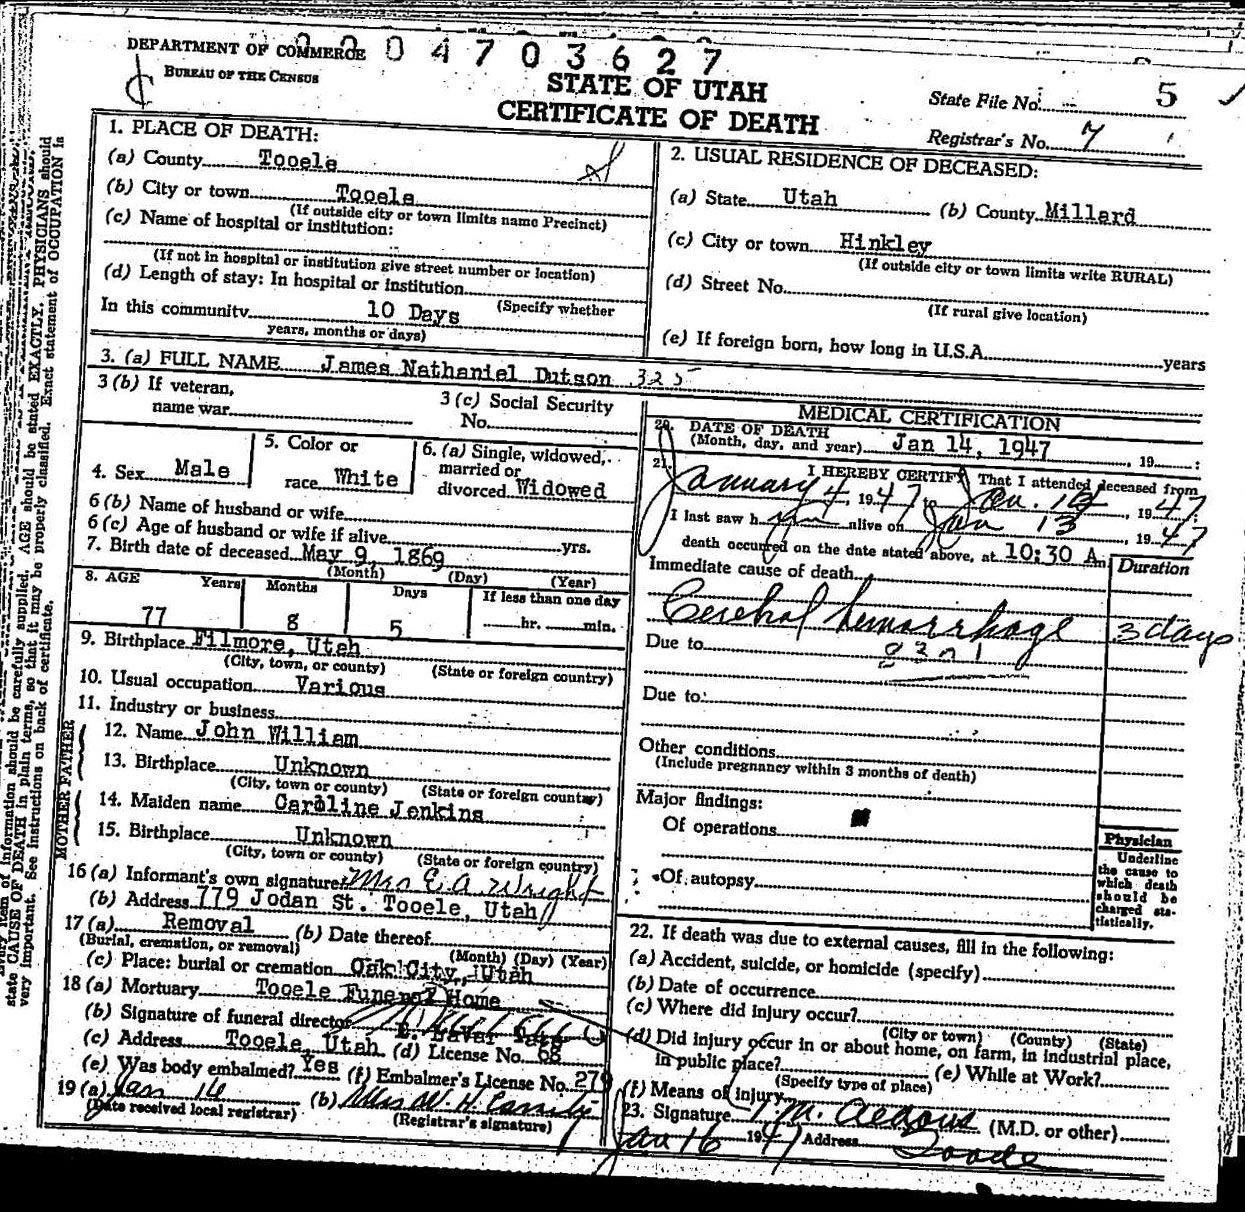 DEPARTMENT OF COMMERCE
BUREAU OF THE CENSUS
0 4 7 0 3 6 2 7
STATE OF UTAH
CERTIFICATE OF DEATH
State File No. 5
Registrar's No. 7
1. PLACE OF DEATH:
(a) County Tooele
(b) City or town Tooele
(If outside city or town limits name Precinct)
(c) Name of hospital or institution:
(If not in hospital or institution give street number or location)
(d) Length of stay: In hospital or institution
(Specify whether
In this community 10 Days
years, months or days)
2. USUAL RESIDENCE OF DECEASED:
(a) State Utah (b) County Millard
(c) City or town Hinkley
(If outside city or town limits write RURAL)
(d) Street No.
(If rural give location)
(e) If foreign born, how long in U.S.A. years
3. (a) FULL NAME James Nathaniel Dutson 325
3 (b) If veteran,
name war
3 (c) Social Security
No.
4. Sex Male
5. Color or
race White
6. (a) Single, widowed,
married or
divorced Widowed
6 (b) Name of husband or wife
6 (c) Age of husband or wife if alive yrs.
7. Birth date of deceased May 9, 1869
(Month) (Day) (Year)
8. AGE Years Months Days If less than one day
77 8 5 hr. min.
9. Birthplace Filmore, Utah
(City, town, or county) (State or foreign country)
10. Usual occupation Various
11. Industry or business
FATHER
12. Name John William
13. Birthplace Unknown
(City, town or county) (State or foreign country)
MOTHER
14. Maiden name Caroline Jenkins
15. Birthplace Unknown
(City, town or county) (State or foreign country)
16 (a) Informant's own signature Mrs E. A. Wright
(b) Address 779 Jodan St. Tooele, Utah
17 (a) Removal (b) Date thereof
(Burial, cremation, or removal) (Month) (Day) (Year)
(c) Place: burial or cremation Oak City, Utah
18 (a) Mortuary Tooele Funeral Home
(b) Signature of funeral director
(c) Address Tooele, Utah (d) License No. 68
(e) Was body embalmed? Yes (f) Embalmer's License No. 279
19 (a) Jan 16 (b) Mrs W. H. Cassity
(Date received local registrar) (Registrar's signature)
MEDICAL CERTIFICATION
20. DATE OF DEATH
(Month, day, and year) Jan 14, 1947, 19
21. I HEREBY CERTIFY That I attended deceased from
January 4, 1947 to Jan. 14, 1947
I last saw him alive on Jan 13 1947
death occurred on the date stated above, at 10:30 A m
Duration
Immediate cause of death
Cerebral hemorrhage 3 days
Due to
Due to
Other conditions
(Include pregnancy within 3 months of death)
Major findings:
Of operations
Of autopsy
Physician
Underline
the cause to
which death
should be
charged sta-
tistically.
22. If death was due to external causes, fill in the following:
(a) Accident, suicide, or homicide (specify)
(b) Date of occurrence
(c) Where did injury occur?
(City or town) (County) (State)
(d) Did injury occur in or about home, on farm, in industrial place,
in public place? (e) While at Work?
(Specify type of place)
(f) Means of injury
23. Signature (M.D. or other)
Jan 16 1947 Address Tooele
state CAUSE OF DEATH in plain terms, so that it may be properly classified. Exact statement of OCCUPATION is
very important. See instructions on back of certificate.
information should be carefully supplied. AGE should be stated EXACTLY. PHYSICIANS should